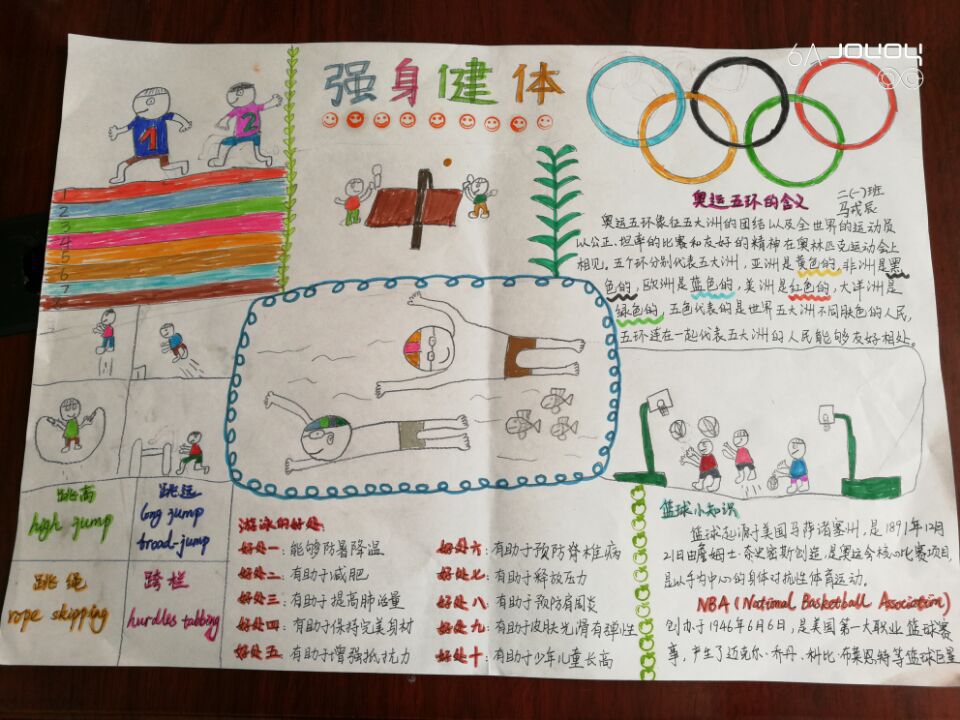 6A JOYOY
强身健体
1
2
1
2
3
4
5
6
7
8
奥运五环的含义
二(一)班
马戎辰
奥运五环象征五大洲的团结以及全世界的运动员
以公正、坦率的比赛和友好的精神在奥林匹克运动会上
相见。五个环分别代表五大洲,亚洲是黄色的,非洲是黑
色的,欧洲是蓝色的,美洲是红色的,大洋洲是
绿色的,五色代表的是世界五大洲不同肤色的人民,
五环连在一起代表五大洲的人民能够友好相处。
跳高
high jump
跳远
long jump
broad-jump
跳绳
rope skipping
跨栏
hurdles tabbing
游泳的好处:
好处一:能够防暑降温
好处二:有助于减肥
好处三:有助于提高肺活量
好处四:有助于保持完美身材
好处五:有助于增强抵抗力
好处六:有助于预防脊椎病
好处七:有助于释放压力
好处八:有助于预防肩周炎
好处九:有助于皮肤光滑有弹性
好处十:有助于少年儿童长高
篮球小知识
篮球起源于美国马萨诸塞州,是1891年12月
21日由詹姆士·奈史密斯创造,是奥运会核心比赛项目,
是以手为中心的身体对抗性体育运动。
NBA(National Basketball Association)
创办于1946年6月6日,是美国第一大职业篮球赛
事,产生了迈克尔·乔丹、科比·布莱恩特等篮球巨星